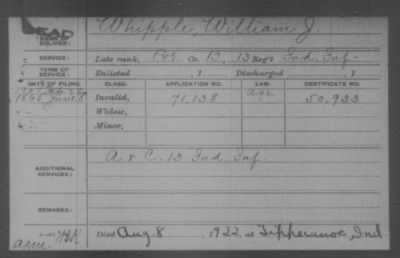 DEAD
NAME OF SOLDIER: Whipple, William J.
SERVICE: Late rank, Pvt. Co. B, 13 Reg't Ind. Inf.
TERM OF SERVICE: Enlisted , 1 Discharged , 1
DATE OF FILING. CLASS. APPLICATION NO. LAW. CERTIFICATE NO.
1865 June 8 Invalid, 71,138 50,933
Widow,
Minor,
ADDITIONAL SERVICES: A & C. 13 Ind. Inf.
REMARKS:
Died Aug. 8 1922, at Tippecanoe, Ind